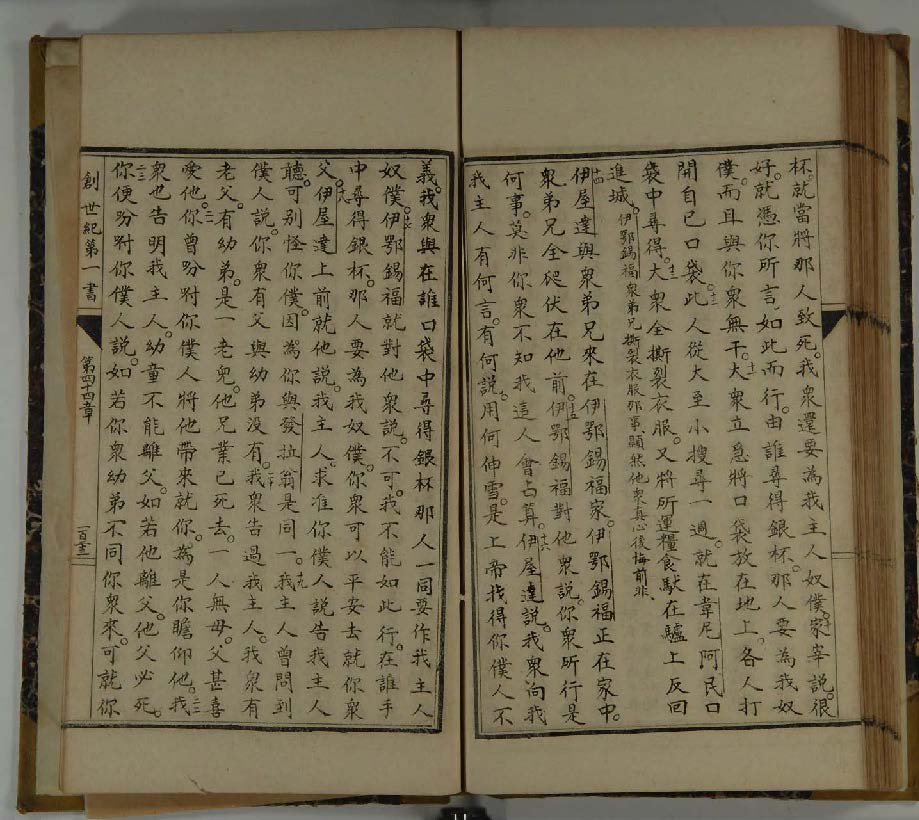 杯。就當將那人致死。我衆還要為我主人奴僕。十家宰說。很
好。就憑你所言。如此而行。由誰尋得銀杯。那人要為我奴
僕。而且與你衆無干。十一大衆立急將口袋放在地上。各人打
開自己口袋。十二此人從大至小搜尋一週。就在韋尼阿民口
袋中尋得。十三大衆全撕裂衣服。又將所運糧食馱在驢上反回
進城。伊鄂錫福衆弟兄撕裂衣服那事。顯然他衆真心後悔前非。
十四伊屋達與衆弟兄來在伊鄂錫福家。伊鄂錫福正在家中。
衆弟兄全爬伏在他前。十五伊鄂錫福對他衆說。你衆所行是
何事。莫非你衆不知我這人會占算。十六伊屋達說。我衆向我
我主人有何言。有何說。用何伸雪。是上帝找得你僕人不
義。我衆與在誰口袋中尋得銀杯那人一同要作我主人
奴僕。十七伊鄂錫福就對他衆說。不可。我不能如此行。在誰手
中尋得銀杯。那人要為我奴僕。你衆可以平安去就你衆
父。十八伊屋達上前就他說。我主人。求准你僕人說告我主人
聽。可別怪你僕。因為你與發拉翁是同一。十九我主人曾問到
僕人說。你衆有父與幼弟沒有。二十我衆告過我主人。我衆有
老父。有幼弟。是一老兒。他兄業已死去。一人無母。父甚喜
愛他。二一你曾吩咐你僕人將他帶來就你。為是你瞻仰他。二二我
衆也告明我主人。幼童不能離父。如若他離父。他父必死。
二三你便吩咐你僕人說。如若你衆幼弟不同你衆來。可就你
創世紀第一書
第四十四章
一百三十三